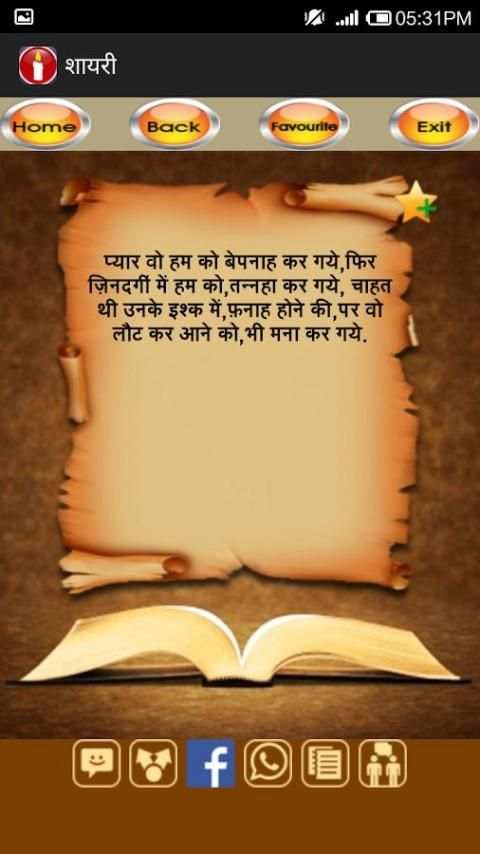 05:31PM
शायरी
Home Back Favourite Exit
प्यार वो हम को बेपनाह कर गये,फिर
ज़िनदगीं में हम को,तन्नहा कर गये, चाहत
थी उनके इश्क में,फ़नाह होने की,पर वो
लौट कर आने को,भी मना कर गये.